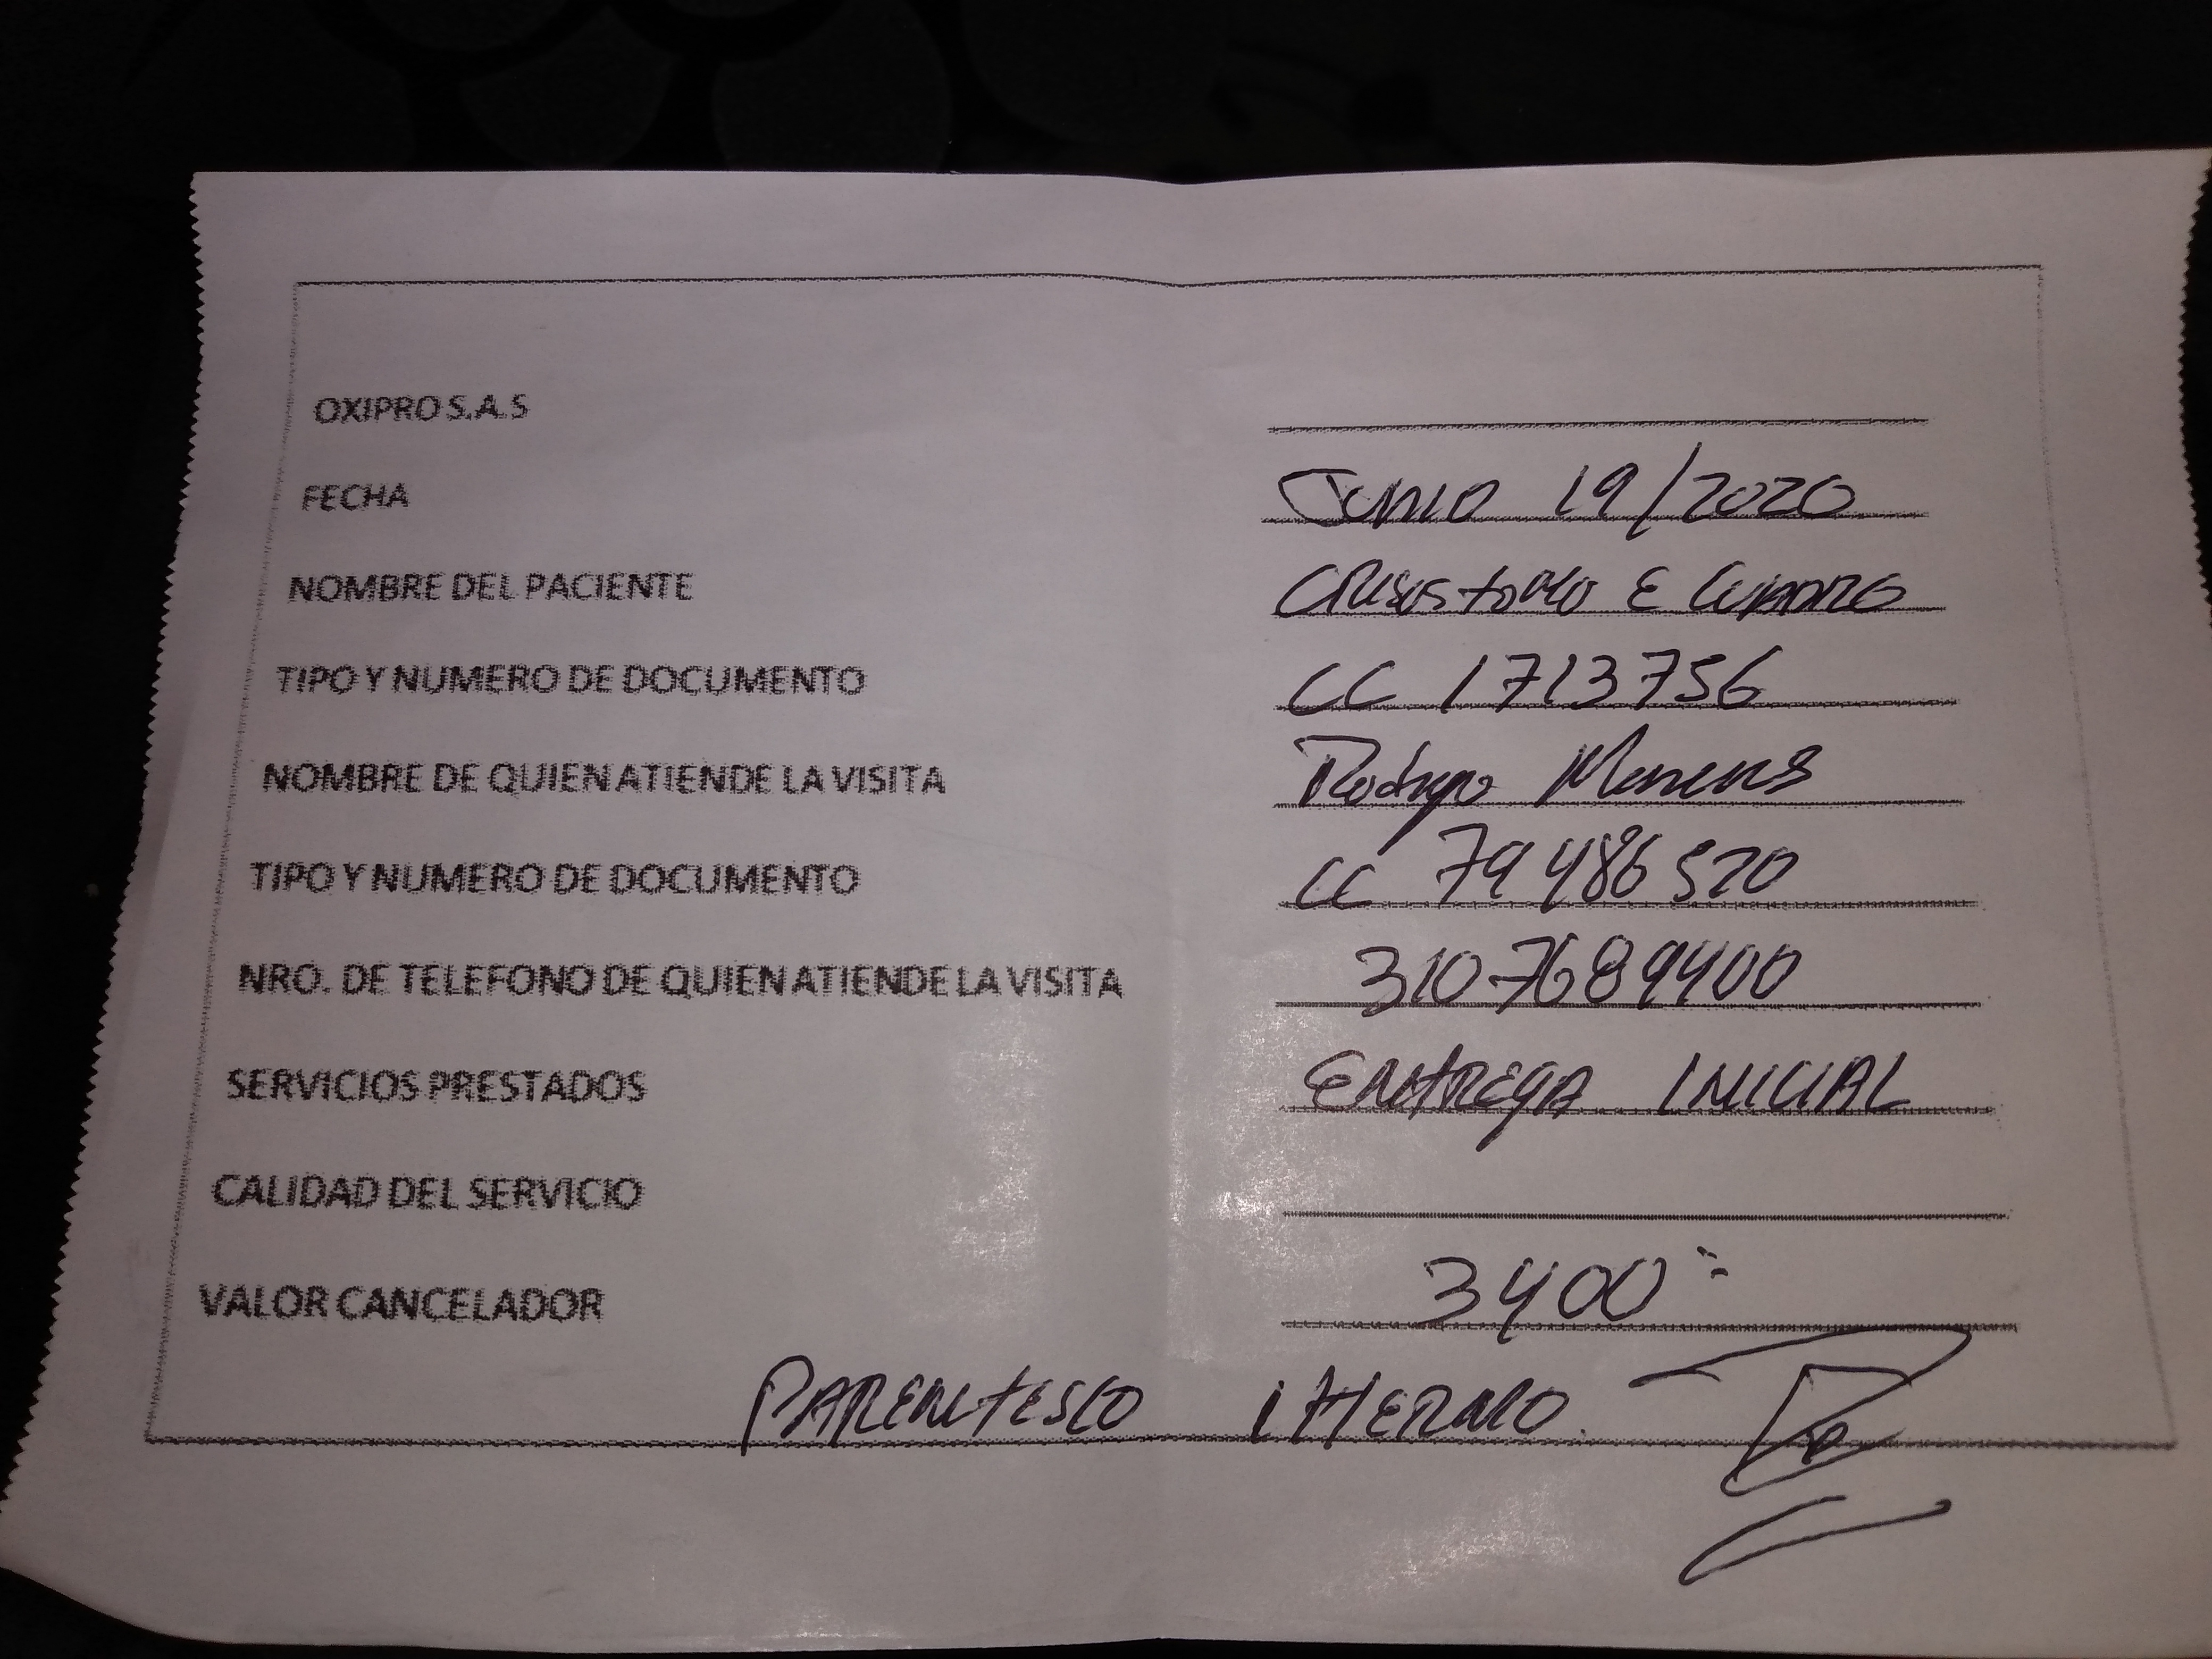 OXIPRO S.A.S
FECHA JUNIO 19/2020
NOMBRE DEL PACIENTE CRISOSTOMO E
TIPO Y NUMERO DE DOCUMENTO CC 1713756
NOMBRE DE QUIEN ATIENDE LA VISITA Rodrigo
TIPO Y NUMERO DE DOCUMENTO CC 79 486 520
NRO. DE TELEFONO DE QUIEN ATIENDE LA VISITA 3107689400
SERVICIOS PRESTADOS ENTREGA INICIAL
CALIDAD DEL SERVICIO
VALOR CANCELADOR 3400=
PARENTESCO